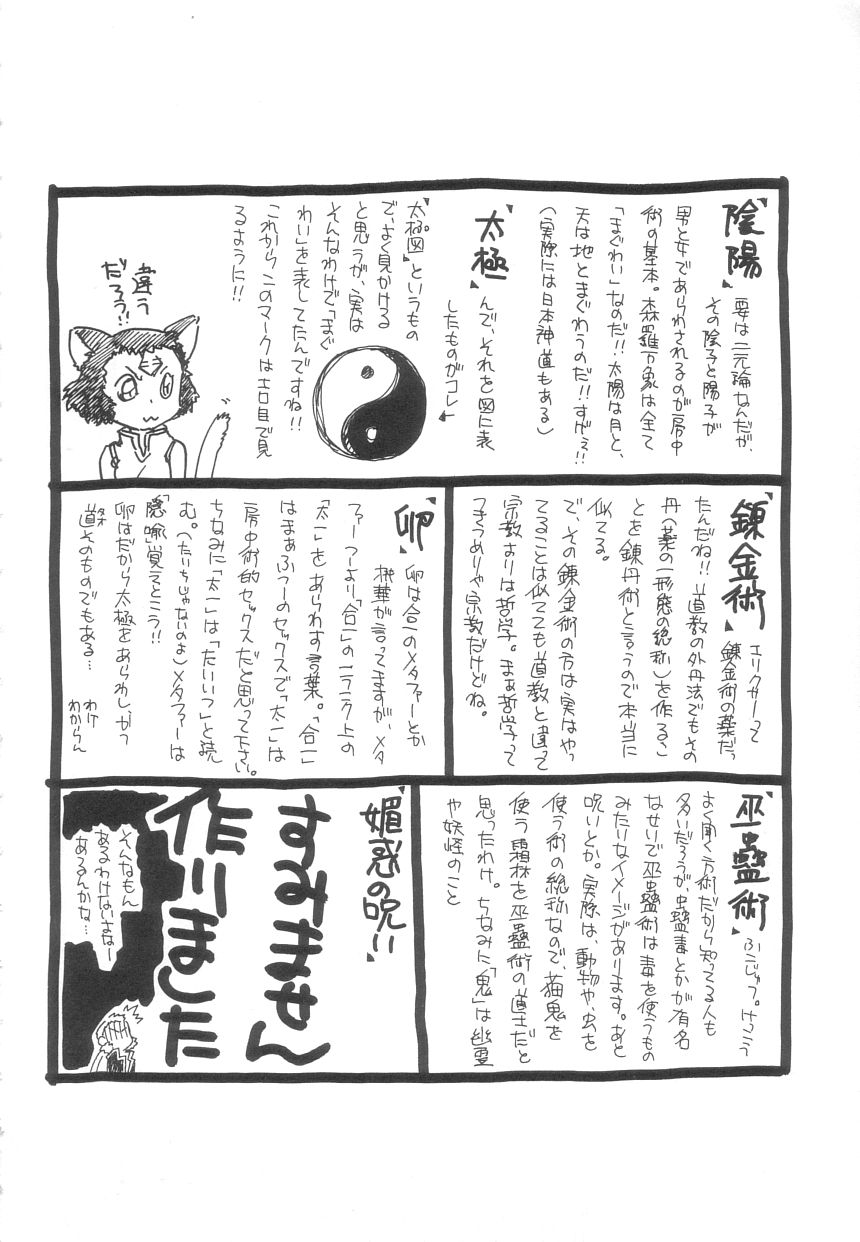 『陰陽』
要は二元論なんだが、
その陰子と陽子が
男と女であらわされるのが房中
術の基本。森羅万象は全て
「まぐわい」なのだ!!太陽は月と、
天は地とまぐわうのだ!!すげぇ!!
(実際には日本神道もある)
『太極』
んで、それを図に表
したものがコレ
『太極図』というもの
で、よく見かける
と思うが、実は
そんなわけで「まぐ
わい」を表してたんですね!!
これからこのマークはエロ目で見
るように!!
違う
だろう!!
『錬金術』
エリクサーって
錬金術の薬だっ
たんだね!!道教の外丹法でもその
丹(薬の一形態の総称)を作るこ
とを錬丹術と言うので本当に
似てる。
で、その錬金術の方は実はやっ
てることは似てても道教と違って
宗教よりは哲学。まぁ哲学って
つきつめりゃ宗教だけどね。
『卵』
卵は合一のメタファーとか
桃華が言ってますが、メタ
ファーつーより「合一」の一ランク上の
「太一」をあらわす言葉。「合一」
はまぁふつーのセックスで「太一」は
房中術的セックスだと思って下さい。
ちなみに「太一」は「たいいつ」と読
む。(たいちじゃないのよ)メタファーは
「隠喩」覚えとこう!!
卵はだから太極をあらわしかつ
道そのものでもある…
タオ
わけ
わからん
『巫蠱術』
ふこじゅつ。けっこう
よく聞く方術だから知ってる人も
多いだろうが、虫蠱毒とかが有名
なせいで巫蠱術は毒を使うもの
みたいなイメージがあります。あと
呪いとか。実際は、動物や、虫を
使う術の総称なので、猫鬼を
使う霜林を巫蠱術の道士だと
思ったわけ。ちなみに「鬼」は幽霊
や妖怪のこと
『媚惑の呪』
すみません
作りました
そんなもん
あるわけないよなー
あるんかな…